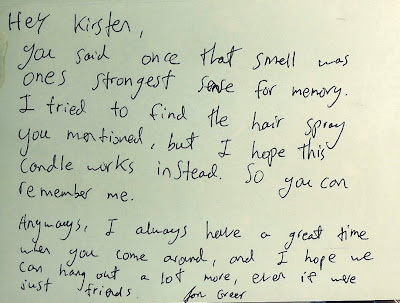 Hey Kirsten,
you said once that smell was
ones strongest sense for memory.
I tried to find the hair spray
you mentioned, but I hope this
Candle works instead. So you can
remember me.
Anyways, I always have a great time
when you come around, and I hope we
can hang out a lot more, even if were
just friends. Jon Greer